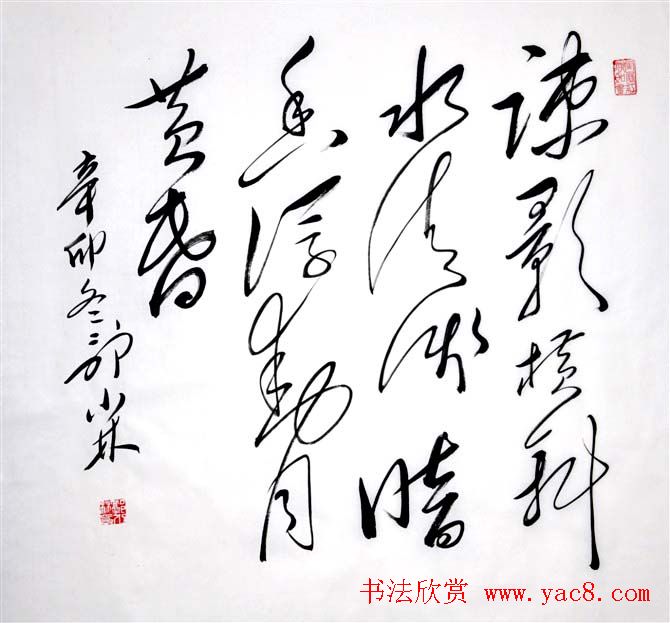 疎影横斜
水清浅暗
香浮動月
黄昏
辛卯冬郭小林
书法欣赏 www.yac8.com